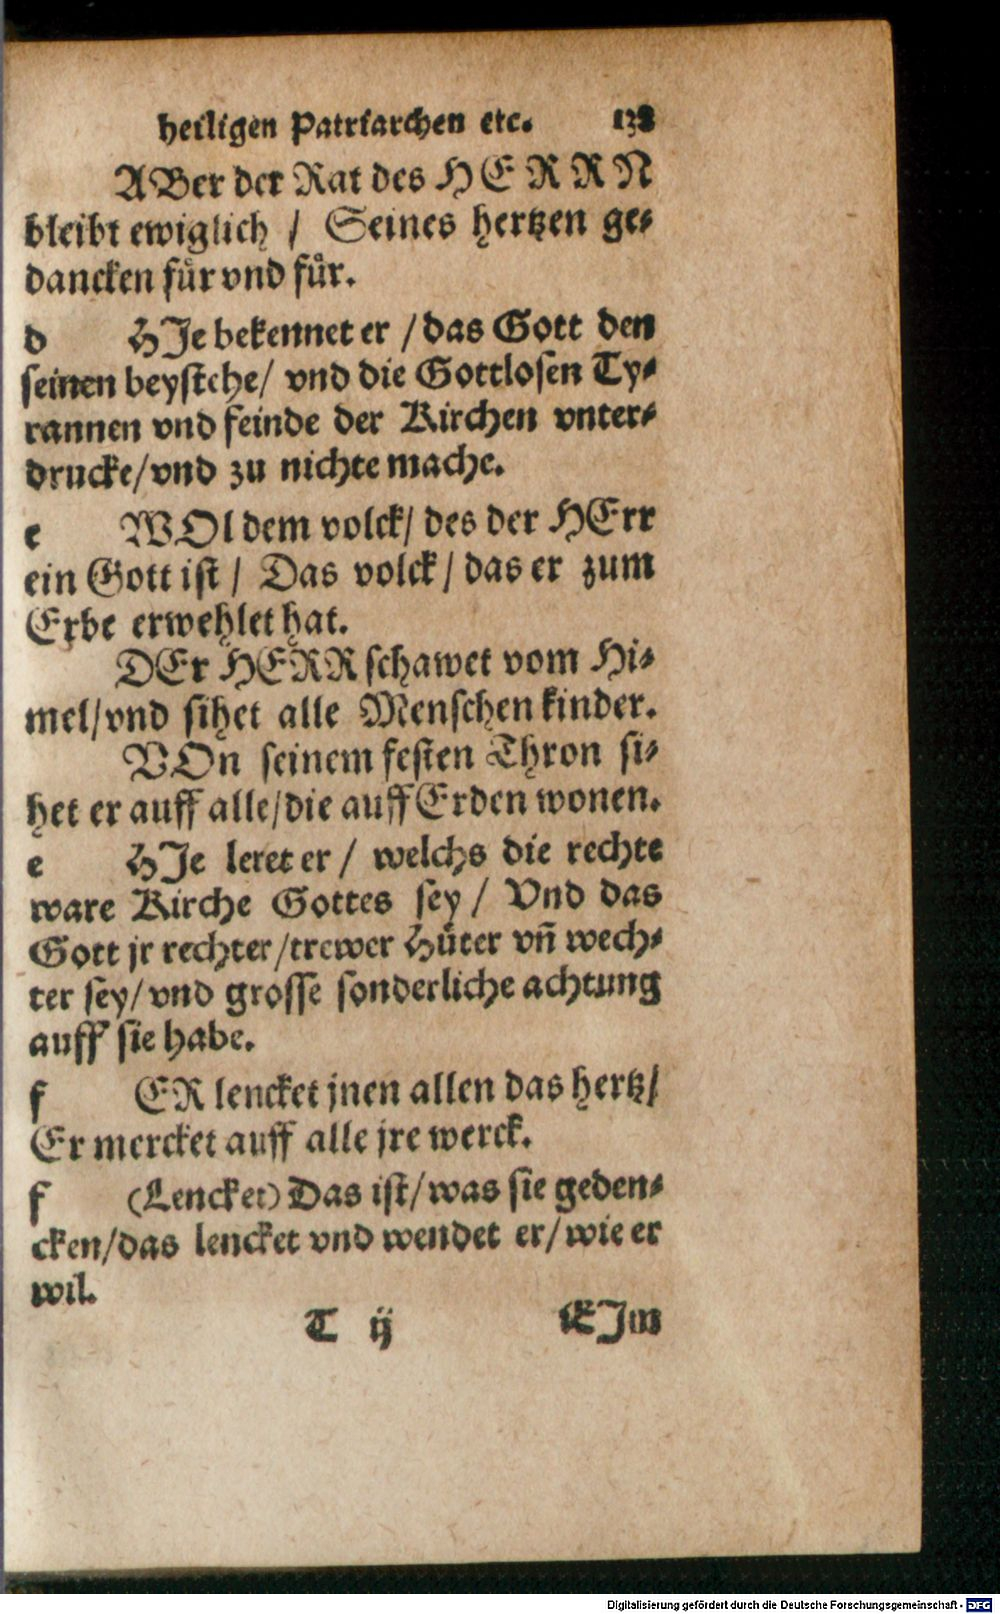 heiligen Patriarchen etc. 138
ABer der Rat des HERRN
bleibt ewiglich / Seines hertzen ge⸗
dancken fuͤr vnd fuͤr.
d HJe bekennet er / das Gott den
seinen beystehe / vnd die Gottlosen Ty⸗
rannen vnd feinde der Kirchen vnter⸗
drucke / vnd zu nichte mache.
e WOl dem volck / des der HErr
ein Gott ist / Das volck / das er zum
Erbe erwehlet hat.
DEr HERR schawet vom Hi⸗
mel / vnd sihet alle Menschen kinder.
VOn seinem festen Thron si⸗
het er auff alle / die auff Erden wonen.
e HJe leret er / welchs die rechte
ware Kirche Gottes sey / Vnd das
Gott jr rechter / trewer Huͤter vñ wech⸗
ter sey / vnd grosse sonderliche achtung
auff sie habe.
f ER lencket jnen allen das hertz /
Er mercket auff alle jre werck.
f (Lencket) Das ist / was sie geden⸗
cken / das lencket vnd wendet er / wie er
wil.
T ij EJm
Digitalisierung gefördert durch die Deutsche Forschungsgemeinschaft - DFG